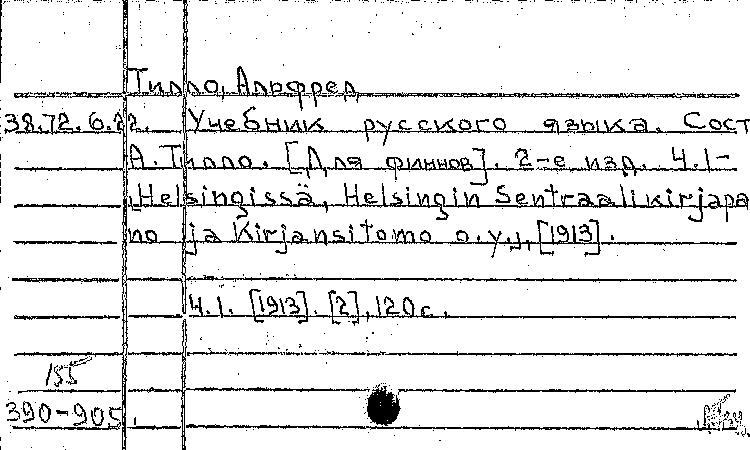 Тилло, Альфред
38.72.6.22. Учебник русского языка. Сост
А. Тилло. [Для финнов]. 2-е изд. Ч.1-
, Helsingissä, Helsingin Sentraalikirjapa
no ja Kirjansitomo o.y., [1913].
Ч.1. [1913]. [2], 120 с.
155
390-905.